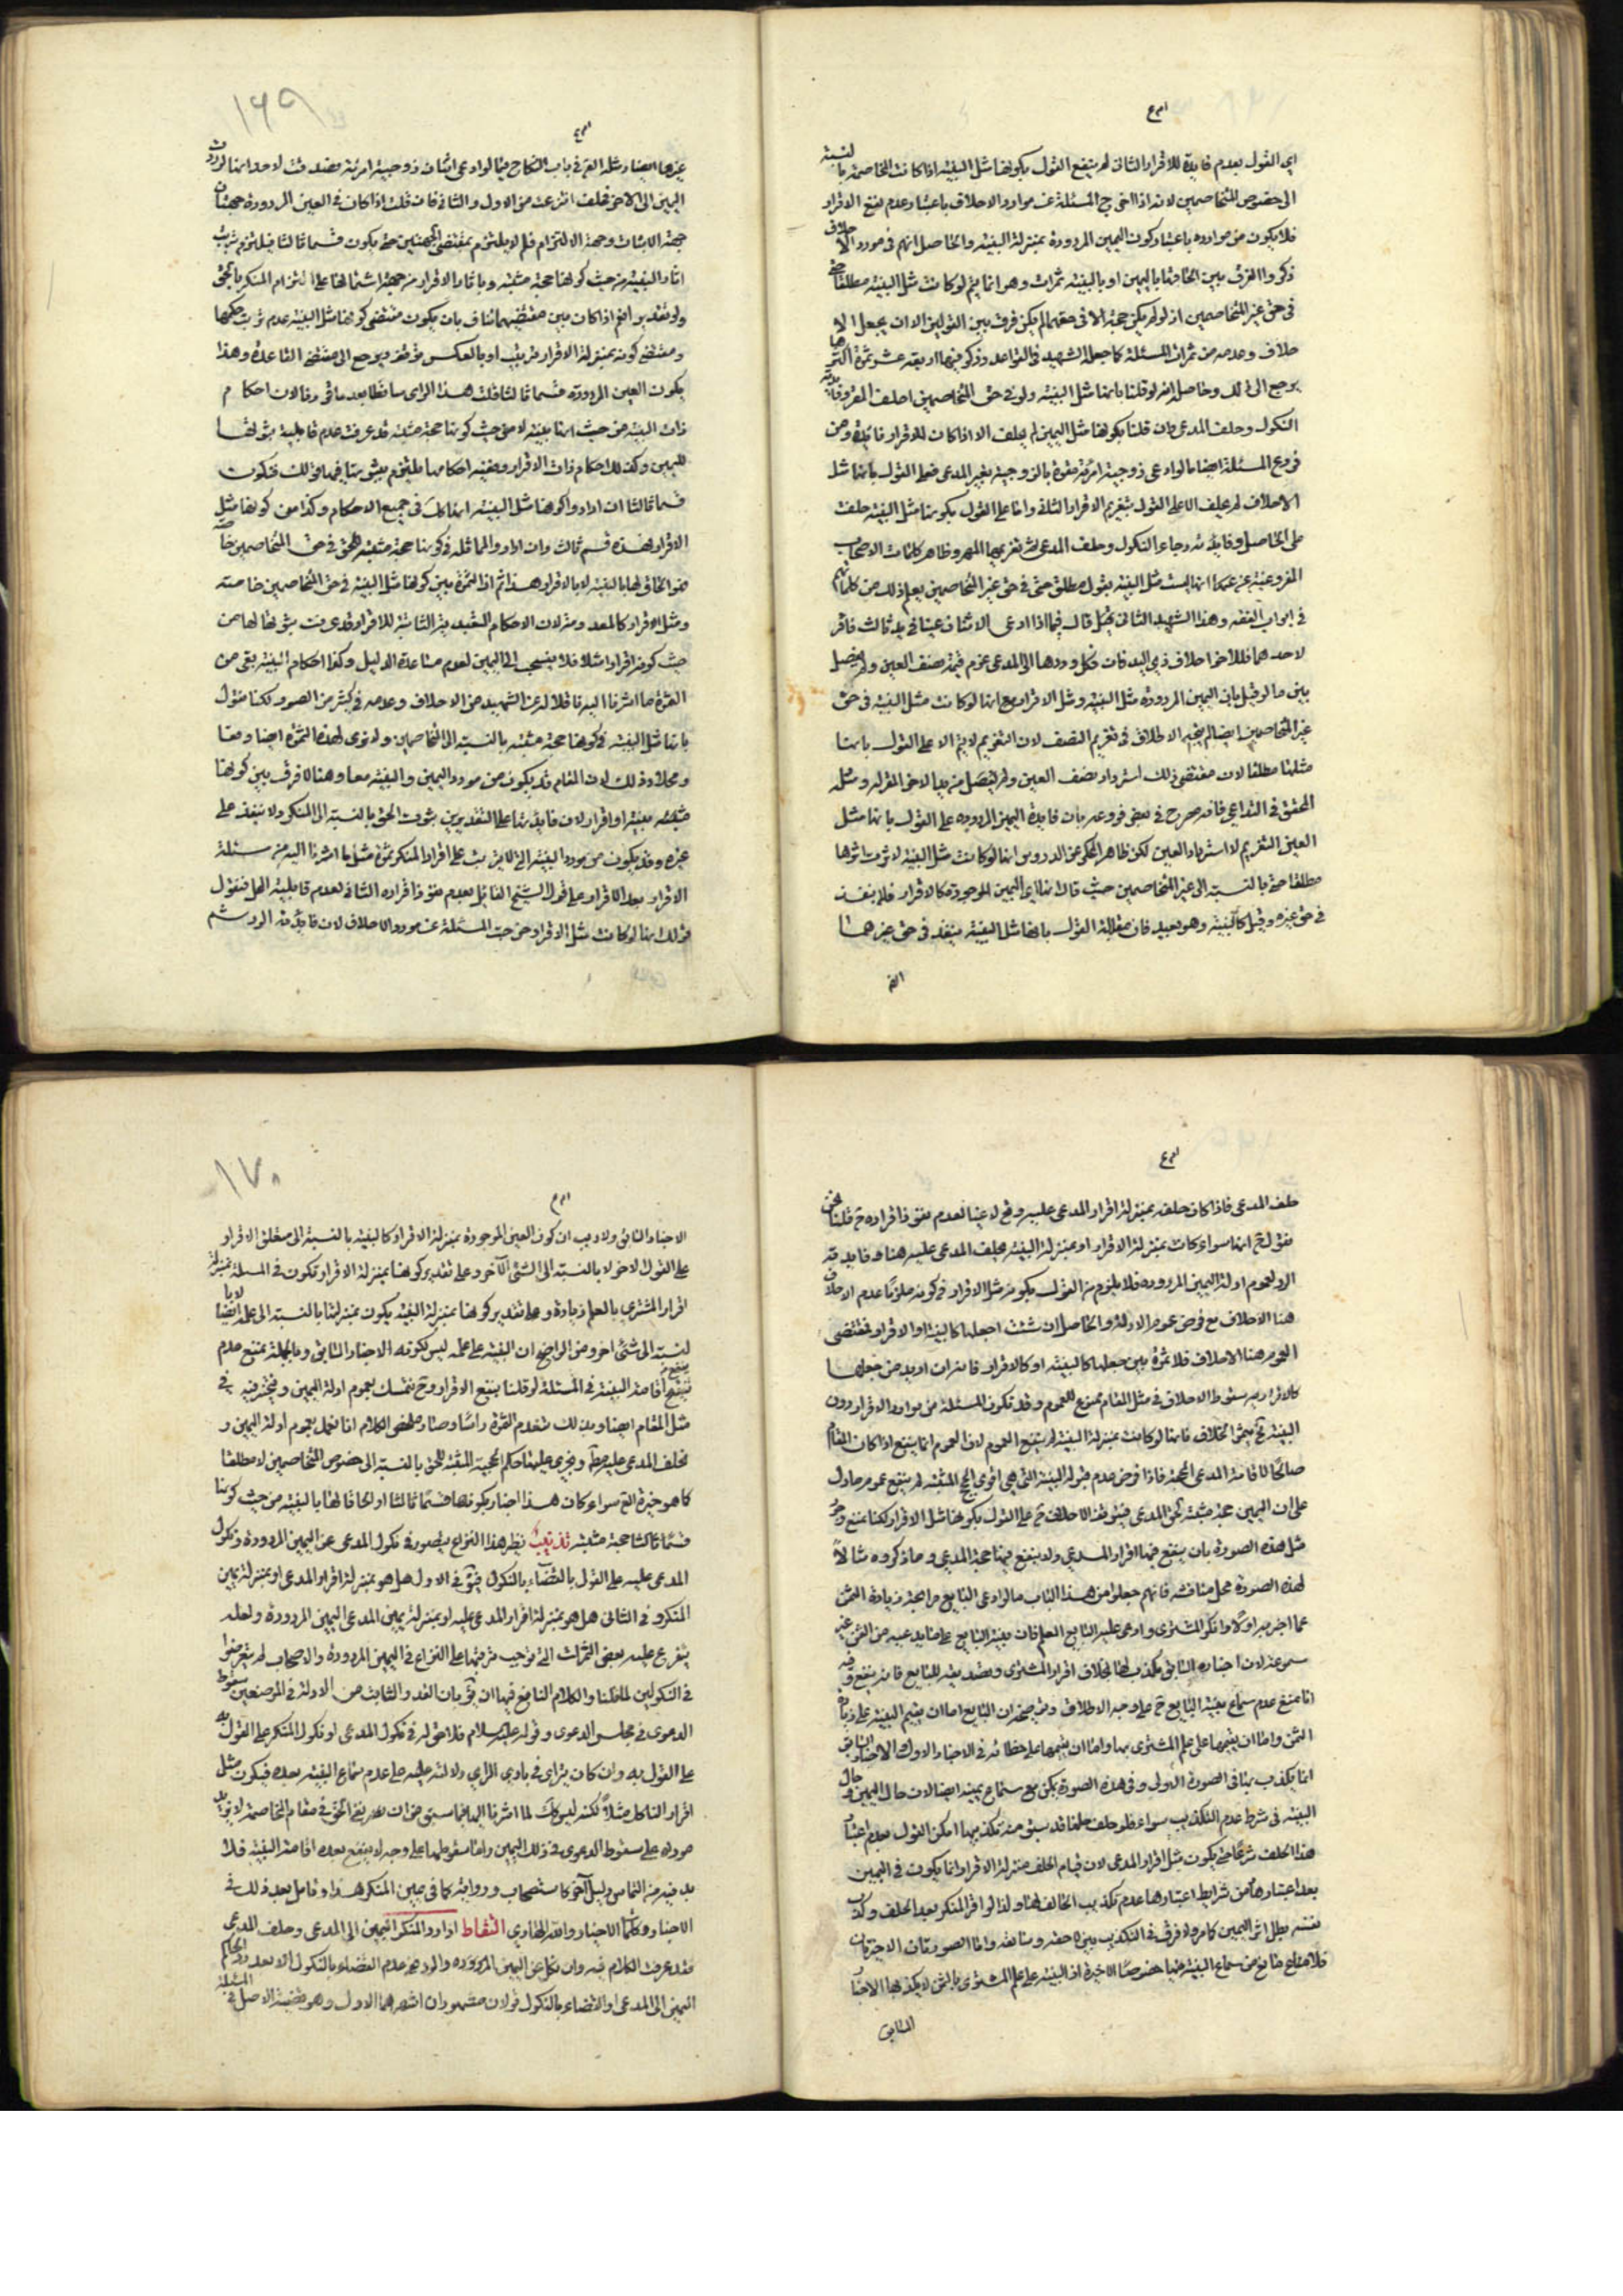 اي القول بعدم فايدة للاقرار الثاني لم ينفع القول بكونها مثل البينة اذا كانت المخاصمة بالنسبة
الى خصوص المتخاصمين لانه اذا اخرج المسئلة عن موارد الاحلاف باعتبار عدم نفع الاقرار
فلا يكون من موارده باعتبار كون اليمين المردودة بمنزلة البينة والحاصل انهم في مورد الاحلاف
ذكروا الفرق بين الحاقها باليمين او بالبينة ثمرات وهو انما يتم لو كانت مثل البينة مطلقا حتى
في حق غير المتخاصمين اذ لو لم يكن حجة الا في حقهما لم يكن فرق بين القولين الا ان يجعل الا
حلاف وعدمه من ثمرات المسئلة كما جعله الشهيد في القواعد وذكر فيها اربعة عشر ثمرة اكثرها
يرجع الى ذلك وحاصله انه لو قلنا بانها مثل البينة ولو في حق المتخاصمين احلف المقر وفايدته
النكول وحلف المدعي وان قلنا بكونها مثل اليمين لم يحلف الا اذا كان للاقرار فايدة ومن
فروع المسئلة ايضا ما لو ادعى زوجية امرئة مقرة بالزوجية بغير المدعي فعلى القول بانها مثل
الاحلاف لم يحلف الا على القول بتغريم الاقرار الثاني واما على القول بكونها مثل البينة حلفت
على الحاصل وفايدته رجاء النكول وحلف المدعي ثم تغريمها المهر وظاهر كلمات الاصحاب
المفروغية عن عدمها انها ليست مثل البينة بقول مطلق حتى في حق غير المتخاصمين يعلم ذلك من كلماتهم
في ابواب الفقه وهذا الشهيد الثاني قال فيما اذا ادعى الاثنان عينا في يد ثالث فاقر
لاحدهما فللآخر احلاف ذي اليد فان نكل وردها الى المدعي غرم قيمة نصف العين ولم يفصل
بين ما لو قيل بان اليمين المردودة مثل البينة ومثل الاقرار مع انها لو كانت مثل البينة في حق
غير المتخاصمين ايضا لم يتجه الاطلاق في تغريم النصف لان التغريم لا يتم الا على القول بانها
مثلها مطلقا لان مقتضى ذلك استرداد نصف العين ولم يتصل من يد الاخر المقر له ومثله
المحقق في التداعي فانه صرح في بعض فروعه بان فايدة اليمين المردودة على القول بانها مثل
العين التغريم لا استرداد العين لكن ظاهر المحكي عن الدروس انها لو كانت مثل البينة لا ثرت اثرها
مطلقا حتى بالنسبة الى غير المتخاصمين حيث قال انها اي اليمين المردودة كالاقرار فلا ينفذ
في حق غيره وقيل كالبينة وهو بعيد فان مقابلة القول بانها مثل البينة ينفذ في حق غيرهما
١٦٩
غيرها ايضا ومثله الفرع في باب النكاح فيما لو ادعى اثنان زوجية امرئة فصدقت لاحدهما لو ردت
اليمين الى الآخر فحلف انتزعت من الاول والثاني فان قلت اذا كان في العين المردودة جهتان
جهة الاثبات وجهة الالتزام فلم لا يلتزم بمقتضى الجهتين حتى يكون قسما ثالثا فيلتزم ترتيب
اثار البينة من حيث كونها حجة مثبتة وباثار الاقرار من جهة اشتمالها على التزام المنكر بالحق
ولو تقدير انهم اذا كان بين مقتضيهما تناف بان يكون مقتضى كونها مثل البينة عدم ترتب حكمها
ومقتضى كونه بمنزلة الاقرار ترتيب او بالعكس فيرجع الى مقتضى القاعدة وهذا
يكون العين المردودة قسما ثالثا قلت هذا الراي ساقط بعد ما قرر فالان احكام
ذات البينة من حيث انها بينة لا من حيث كونها حجة مثبتة قد عرفت عدم قابلية ثبوتها
لليمين وكذلك احكام ذات الاقرار وبقية احكامها يلتزم بثبوتها فيها بذلك فتكون
قسما ثالثا ان ارادوا كونها مثل البينة انها كك في جميع الاحكام وكذا من كونها مثل
الاقرار بهذه قسم ثالث وان اراد والمماثلة في كونها حجة مثبتة للحق في حق المتخاصمين خاصة
فهو الحاق لها بالبينة لا بالاقرار هذا ثم اذا الثمرة بين كونها مثل البينة في حق المتخاصمين خاصة
ومثل الاقرار كالمعدوم لان الاحكام التعبدية الثابتة للاقرار قد عرفت ثبوتها لها من
حيث كونه اقرارا مثلا فلا ينسحب الى اليمين لعدم مساعدة الدليل وكذا احكام البينة بقي من
الثمرة ما اشرنا اليه نقلا له عن الشهيد من الاحلاف وعدمه في كثير من الصور لكنا نقول
بانها مثل البينة في كونها حجة مثبتة بالنسبة الى المتخاصمين ولا نرى لهذه الثمرة ايضا وقعا
ومحلا وذلك لان المقام قد يكون من مورد اليمين والبينة معا وهنا لا فرق بين كونها
مثبتة بينة او اقرار لان فايدتها على التقديرين ثبوت الحق بالنسبة الى المنكر ولا ينفذ على
غيره وقد يكون من مورد البينة التي لا يترتب على اقرار المنكر ثمرة مثل ما اشرنا اليه من مسئلة
الاقرار بعد الاقرار على قول الشيخ القايل بعدم نفوذ اقراره الثاني لعدم قابلية المحل فنقول
فذلك انها لو كانت مثل الاقرار خرجت المسئلة عن مورد الاحلاف لان فايدته الرد ثم
حلف المدعي فاذا كان حلفه بمنزلة اقرار المدعى عليه وقع لاغيا لعدم نفوذ اقراره ح قلنا نحن
نقول ح انها سواء كانت بمنزلة الاقرار او بمنزلة البينة يحلف المدعى عليه هنا وفايدته
الرد لعموم ادلة اليمين المردودة فلا يلزم من القول بكونه مثل الاقرار في كونه ملزما عدم الاحلاف
هنا الاحلاف مع فرض عموم الادلة والحاصل ان شئت اجعلها كالبينة او الاقرار فمقتضى
العموم هنا الاحلاف فلا ثمرة بين جعلها كالبينة او كالاقرار فانه ان اريد من جعلها
كالاقرار به سقوط الاحلاف في مثل المقام ممنوع للعموم وقد تكون المسئلة من موارد الاقرار دون
البينة ح يثمر الخلاف فانها لو كانت بمنزلة البينة لم ينفع العموم لان العموم انما ينفع اذا كان المقام
صالحا لاقامة المدعي الحجة فاذا فرض عدم قبوله البينة التي هي اقوى الحجج المثبتة لم ينفع عموم ما دل
على ان اليمين حجة مثبتة لحق المدعي فيتوقف الاحلاف ح على القول بكونها مثل الاقرار لكنا نمنع وجود
مثل هذه الصورة بان ينفع فيها اقرار المدعي ولا ينفع فيها حجة المدعي وما ذكروه مثالا
لهذه الصورة محل مناقشة فانهم جعلوا من هذا الباب ما لو ادعى البايع مرابحة زيادة الثمن
عما اخبر به اولا وانكر المشتري وادعى عليه البايع العلم فان بينة البايع على ما يدعيه من الثمن غير
مسموعة لان اخباره السابق مكذب لها بخلاف اقرار المشتري وتصديقه للبايع فانه ينفع وفيه
انا نمنع عدم سماع بينة البايع ح على وجه الاطلاق وتوضيحه ان البايع اما ان يقيم البينة على زيادة
الثمن واما ان يقيمها على علم المشتري بها واما ان يقيمها على خطائه في الاخبار الاول والاخبار السابق
انما يكذب بينة في الصورة الاولى وفي هذه الصورة يمكن منع سماع يمينه ايضا لان حال اليمين وحال
البينة في شرط عدم التكذيب سواء فلو حلف على ما قد سبق منه تكذيبها امكن القول بعدم اعتبار
هذا الحلف شرعا حتى يكون مثل اقرار المدعي لان قيام الحلف منزلة الاقرار انما يكون في اليمين
بعد اعتبارها ومن شرايط اعتبارها عدم تكذيب الحالف لها ولذا لو اقر المنكر بعد الحلف وكذب
نفسه بطل اثر اليمين كامر ولا فرق في التكذيب بين لاحقه وسابقه واما الصورتان الاخيرتان
فلا مانع من سماع البينة فيها خصوصا الاخيرة اذ البينة على علم المشتري بالثمن لا يكذبها الاخبار
السابق
١٧٠
الاخبار السابق ولا ريب ان كون العين الموجودة بمنزلة الاقرار كالبينة بالنسبة الى متعلق الاقرار
على القول الاخر لا بالنسبة الى الشئ الآخر وعلى تقدير كونها بمنزلة الاقرار تكون في المسئلة بمنزلة
اقرار المشتري بالعلم زيادة وعلى تقدير كونها بمنزلة البينة يكون بمنزلتها بالنسبة الى علمه ايضا لا
لنسبة الى شئ اخر ومن الواضح ان البينة على علمه ليس مكذبه الاخبار السابق وبالجملة نمنع عدم
نفع اقامة البينة في المسئلة لو قلنا بنفع الاقرار وح نتمسك بعموم ادلة اليمين
مثل المقام ايضا وبذلك تنعدم الثمرة راسا وصار ملخص الكلام انا نعمل بعموم ادلة اليمين و
نحلف المدعى عليه مطلقا ويجري عليها حكم الحجية المثبتة للحق بالنسبة الى خصوص المتخاصمين لا مطلقا
كما هو خيرة سواء كان هذا اخبار بكونها قسما ثالثا او الحاقا لها بالبينة من حيث كونها
قسما ثالثا حجة مثبتة تذنيب نظير هذا النزاع يتصور في نكول المدعي عن اليمين المردودة ونكول
المدعى عليه على القول بالقضاء بالنكول فيق في الاول هل هو بمنزلة اقرار المدعي او بمنزلة يمين
المنكر وفي الثاني هل هو بمنزلة اقرار المدعى عليه او بمنزلة يمين المدعي اليمين المردودة ولعله
يتفرع عليه بعض الثمرات التي توجب ترتيبها على النزاع في اليمين المردودة والاصحاب لم يتعرضوا
في النكولين لما قلنا والكلام النافع فيها ان يق بان القدر الثابت من الادلة في الموضعين سقوط
الدعوى في مجلس الدعوى وقوله عليه السلام فلا حق له في نكول المدعي او نكول المنكر على القول به
على القول به وان كان يترائ في بادي الراي دلالته عليه على عدم سماع البينة بعده فيكون مثل
اقرار الناكل مثلا لكنه ليس كك لما اشرنا اليه فيما سبق من ان نفي الحق في مقام المخاصمة لا يزيد
مورده على سقوط الدعوى في ذلك اليمين واما سقوطها على وجه لا ينفع بعده اقامة البينة فلا
بد فيه من التماس دليل آخر كاستصحاب ورواية كما في يمين المنكر هذا وتامل بعد ذلك في
الاخبار وكلمات الاخيار والله الهادي التقاط اذا رد المنكر اليمين الى المدعي وحلف المدعي
فقد عرفت الكلام فيه وان نكل عن اليمين المردودة والرد ففي عدم القضاء بالنكول الا بعد رد الحاكم
اليمين الى المدعي او القضاء بالنكول قولان مشهوران اشهرهما الاول وهو مقتضى الاصل في المسئلة